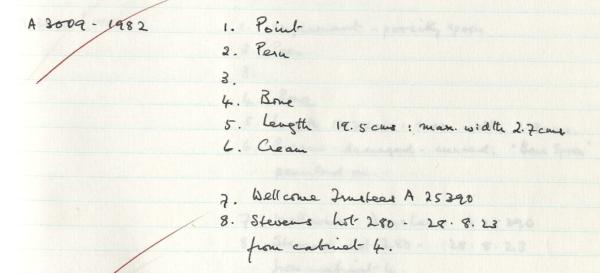 A 3009 - 1982 1. Point
2. Peru
3.
4. Bone
5. Length 19.5 cms : max. width 2.7 cms
6. Cream
7. Wellcome Trustees A 25390
8. Stevens Lot 280 - 28.8.23
from cabinet 4.